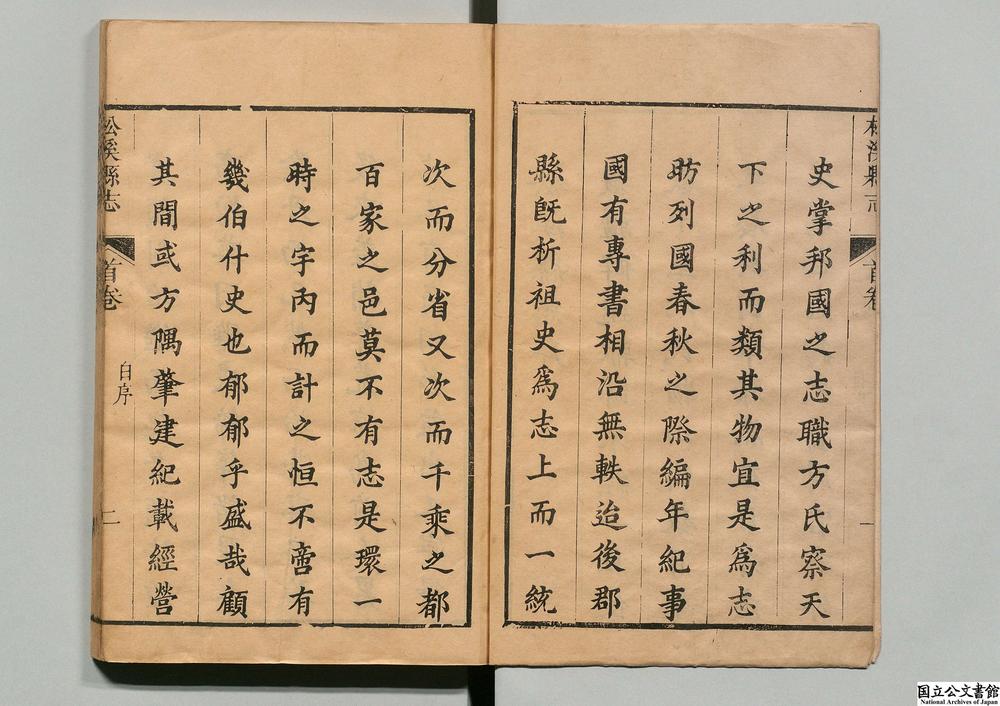 松溪縣志
首卷
一
史掌邦國之志職方氏察天
下之利而類其物宜是爲志
昉列國春秋之際編年紀事
國有專書相沿無軼迨後郡
縣旣析祖史爲志上而一統
次而分省又次而千乘之都
百家之邑莫不有志是環一
時之宇內而計之恒不啻有
幾伯什史也郁郁乎盛哉顧
其間或方隅肇建紀載經營
松溪縣志
首卷
自序
二
国立公文書館
National Archives of Japan